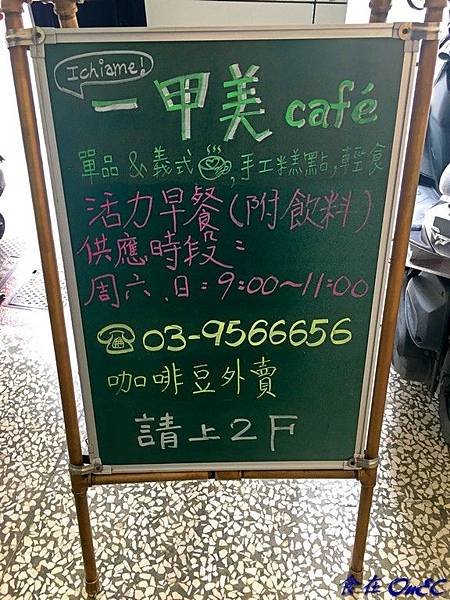 Ichiame!
一甲美 café
單品 & 義式 , 手工糕點, 輕食
活力早餐(附飲料)
供應時段：
周六、日：9:00~11:00
☎ 03-9566656
咖啡豆外賣
請上2F
食在 OneC